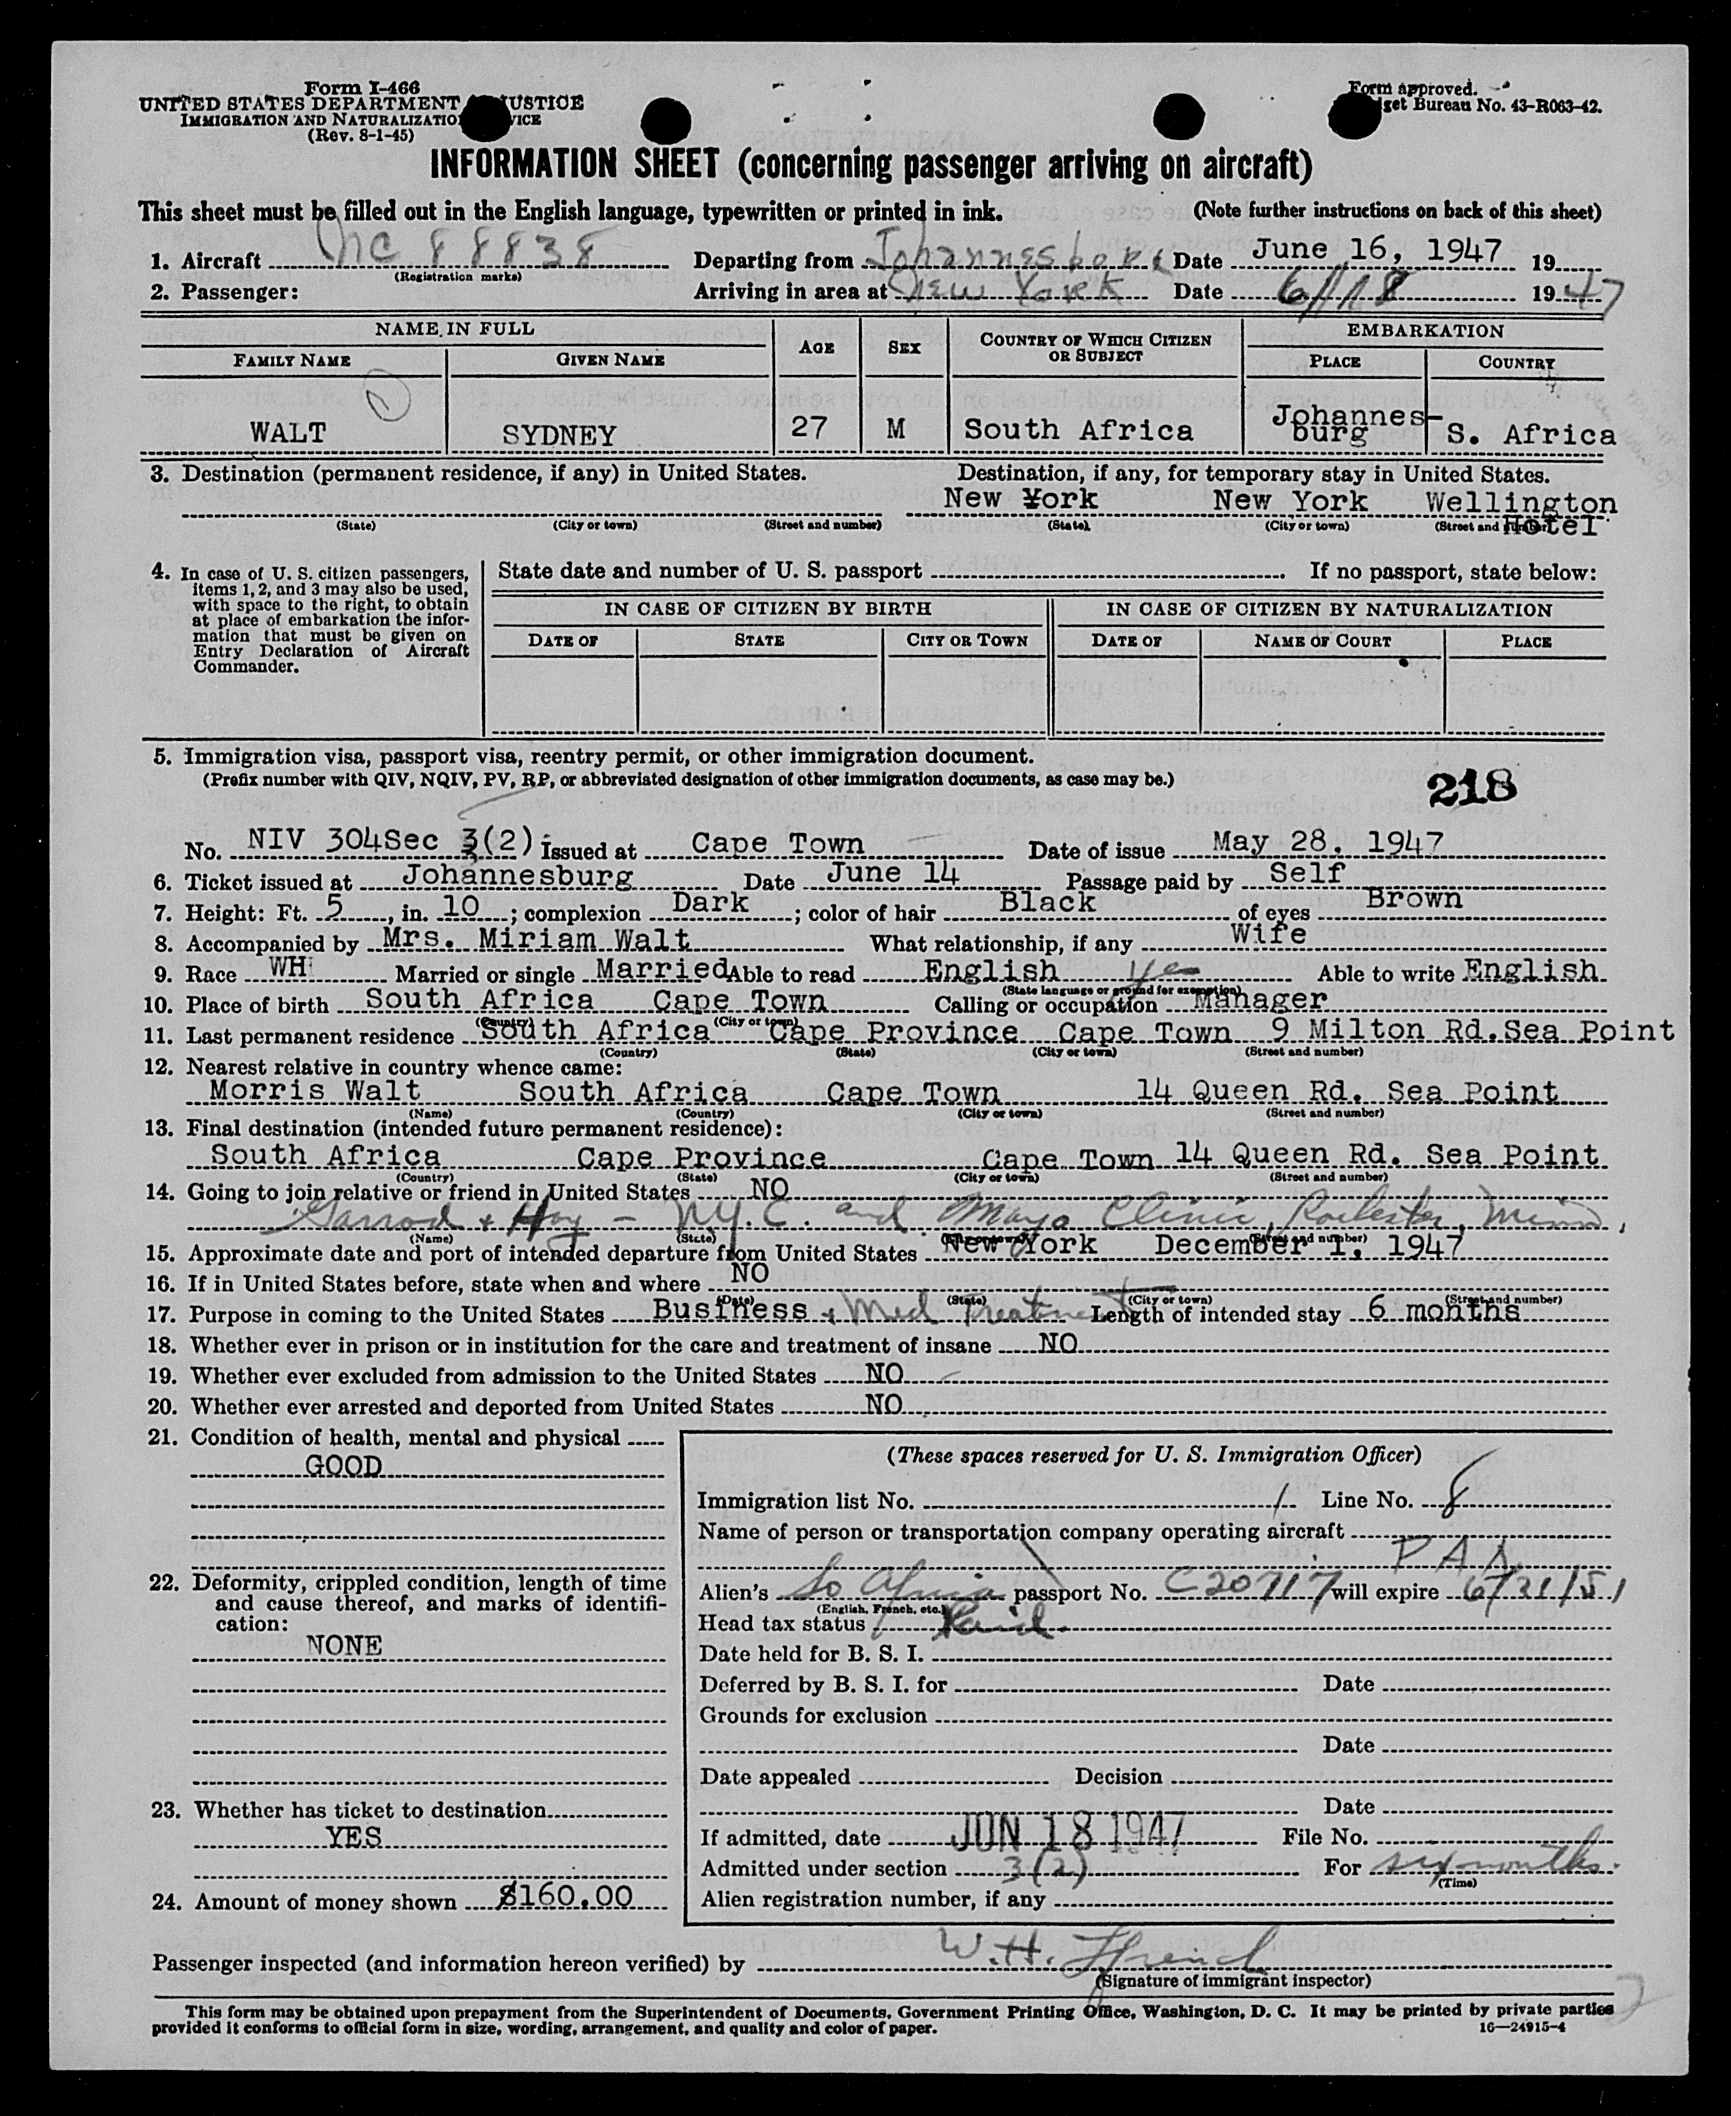 Form I-466
UNITED STATES DEPARTMENT USTICE
IMMIGRATION AND NATURALIZATIO VICE
(Rev. 8-1-45)
Form approved.
get Bureau No. 43-R063-42.
INFORMATION SHEET (concerning passenger arriving on aircraft)
This sheet must be filled out in the English language, typewritten or printed in ink. (Note further instructions on back of this sheet)
1. Aircraft NC 88838 Departing from Johannesburg Date June 16, 1947 19
(Registration marks)
2. Passenger: Arriving in area at New York Date 6/18 1947
NAME IN FULL AGE SEX COUNTRY OF WHICH CITIZEN OR SUBJECT EMBARKATION
FAMILY NAME GIVEN NAME PLACE COUNTRY
WALT SYDNEY 27 M South Africa Johannes-burg S. Africa
3. Destination (permanent residence, if any) in United States. Destination, if any, for temporary stay in United States.
New York New York Wellington Hotel
(State) (City or town) (Street and number) (State) (City or town) (Street and number)
4. In case of U. S. citizen passengers,
items 1, 2, and 3 may also be used,
with space to the right, to obtain
at place of embarkation the infor-
mation that must be given on
Entry Declaration of Aircraft
Commander.
State date and number of U. S. passport If no passport, state below:
IN CASE OF CITIZEN BY BIRTH IN CASE OF CITIZEN BY NATURALIZATION
DATE OF STATE CITY OR TOWN DATE OF NAME OF COURT PLACE
5. Immigration visa, passport visa, reentry permit, or other immigration document.
(Prefix number with QIV, NQIV, PV, RP, or abbreviated designation of other immigration documents, as case may be.)
218
No. NIV 304Sec 3(2) Issued at Cape Town Date of issue May 28. 1947
6. Ticket issued at Johannesburg Date June 14 Passage paid by Self
7. Height: Ft. 5, in. 10; complexion Dark; color of hair Black of eyes Brown
8. Accompanied by Mrs. Miriam Walt What relationship, if any Wife
9. Race WH Married or single Married Able to read English yes Able to write English
(State language or ground for exemption)
10. Place of birth South Africa Cape Town Calling or occupation Manager
(Country) (City or town)
11. Last permanent residence South Africa Cape Province Cape Town 9 Milton Rd.Sea Point
(Country) (State) (City or town) (Street and number)
12. Nearest relative in country whence came:
Morris Walt South Africa Cape Town 14 Queen Rd. Sea Point
(Name) (Country) (City or town) (Street and number)
13. Final destination (intended future permanent residence):
South Africa Cape Province Cape Town 14 Queen Rd. Sea Point
(Country) (State) (City or town) (Street and number)
14. Going to join relative or friend in United States NO
N.Y.C. and Mayo Clinic, Rochester, Minn,
(Name) (State) (City or town) (Street and number)
15. Approximate date and port of intended departure from United States New York December 1, 1947
16. If in United States before, state when and where NO
(Date) (State) (City or town) (Street and number)
17. Purpose in coming to the United States Business & Med Treatment Length of intended stay 6 months
18. Whether ever in prison or in institution for the care and treatment of insane NO
19. Whether ever excluded from admission to the United States NO
20. Whether ever arrested and deported from United States NO
21. Condition of health, mental and physical
GOOD
22. Deformity, crippled condition, length of time
and cause thereof, and marks of identifi-
cation:
NONE
23. Whether has ticket to destination
YES
24. Amount of money shown $160.00
(These spaces reserved for U. S. Immigration Officer)
Immigration list No. 1 Line No. 8
Name of person or transportation company operating aircraft
P A A
Alien's So Africa passport No. C20717 will expire 6/21/51
(English, French, etc.)
Head tax status Paid.
Date held for B. S. I.
Deferred by B. S. I. for Date
Grounds for exclusion
Date
Date appealed Decision
Date
If admitted, date JUN 18 1947 File No.
Admitted under section 3(2) For six months.
(Time)
Alien registration number, if any
Passenger inspected (and information hereon verified) by W.H.
(Signature of immigrant inspector)
This form may be obtained upon prepayment from the Superintendent of Documents, Government Printing Office, Washington, D. C. It may be printed by private parties
provided it conforms to official form in size, wording, arrangement, and quality and color of paper.
16—24915-4